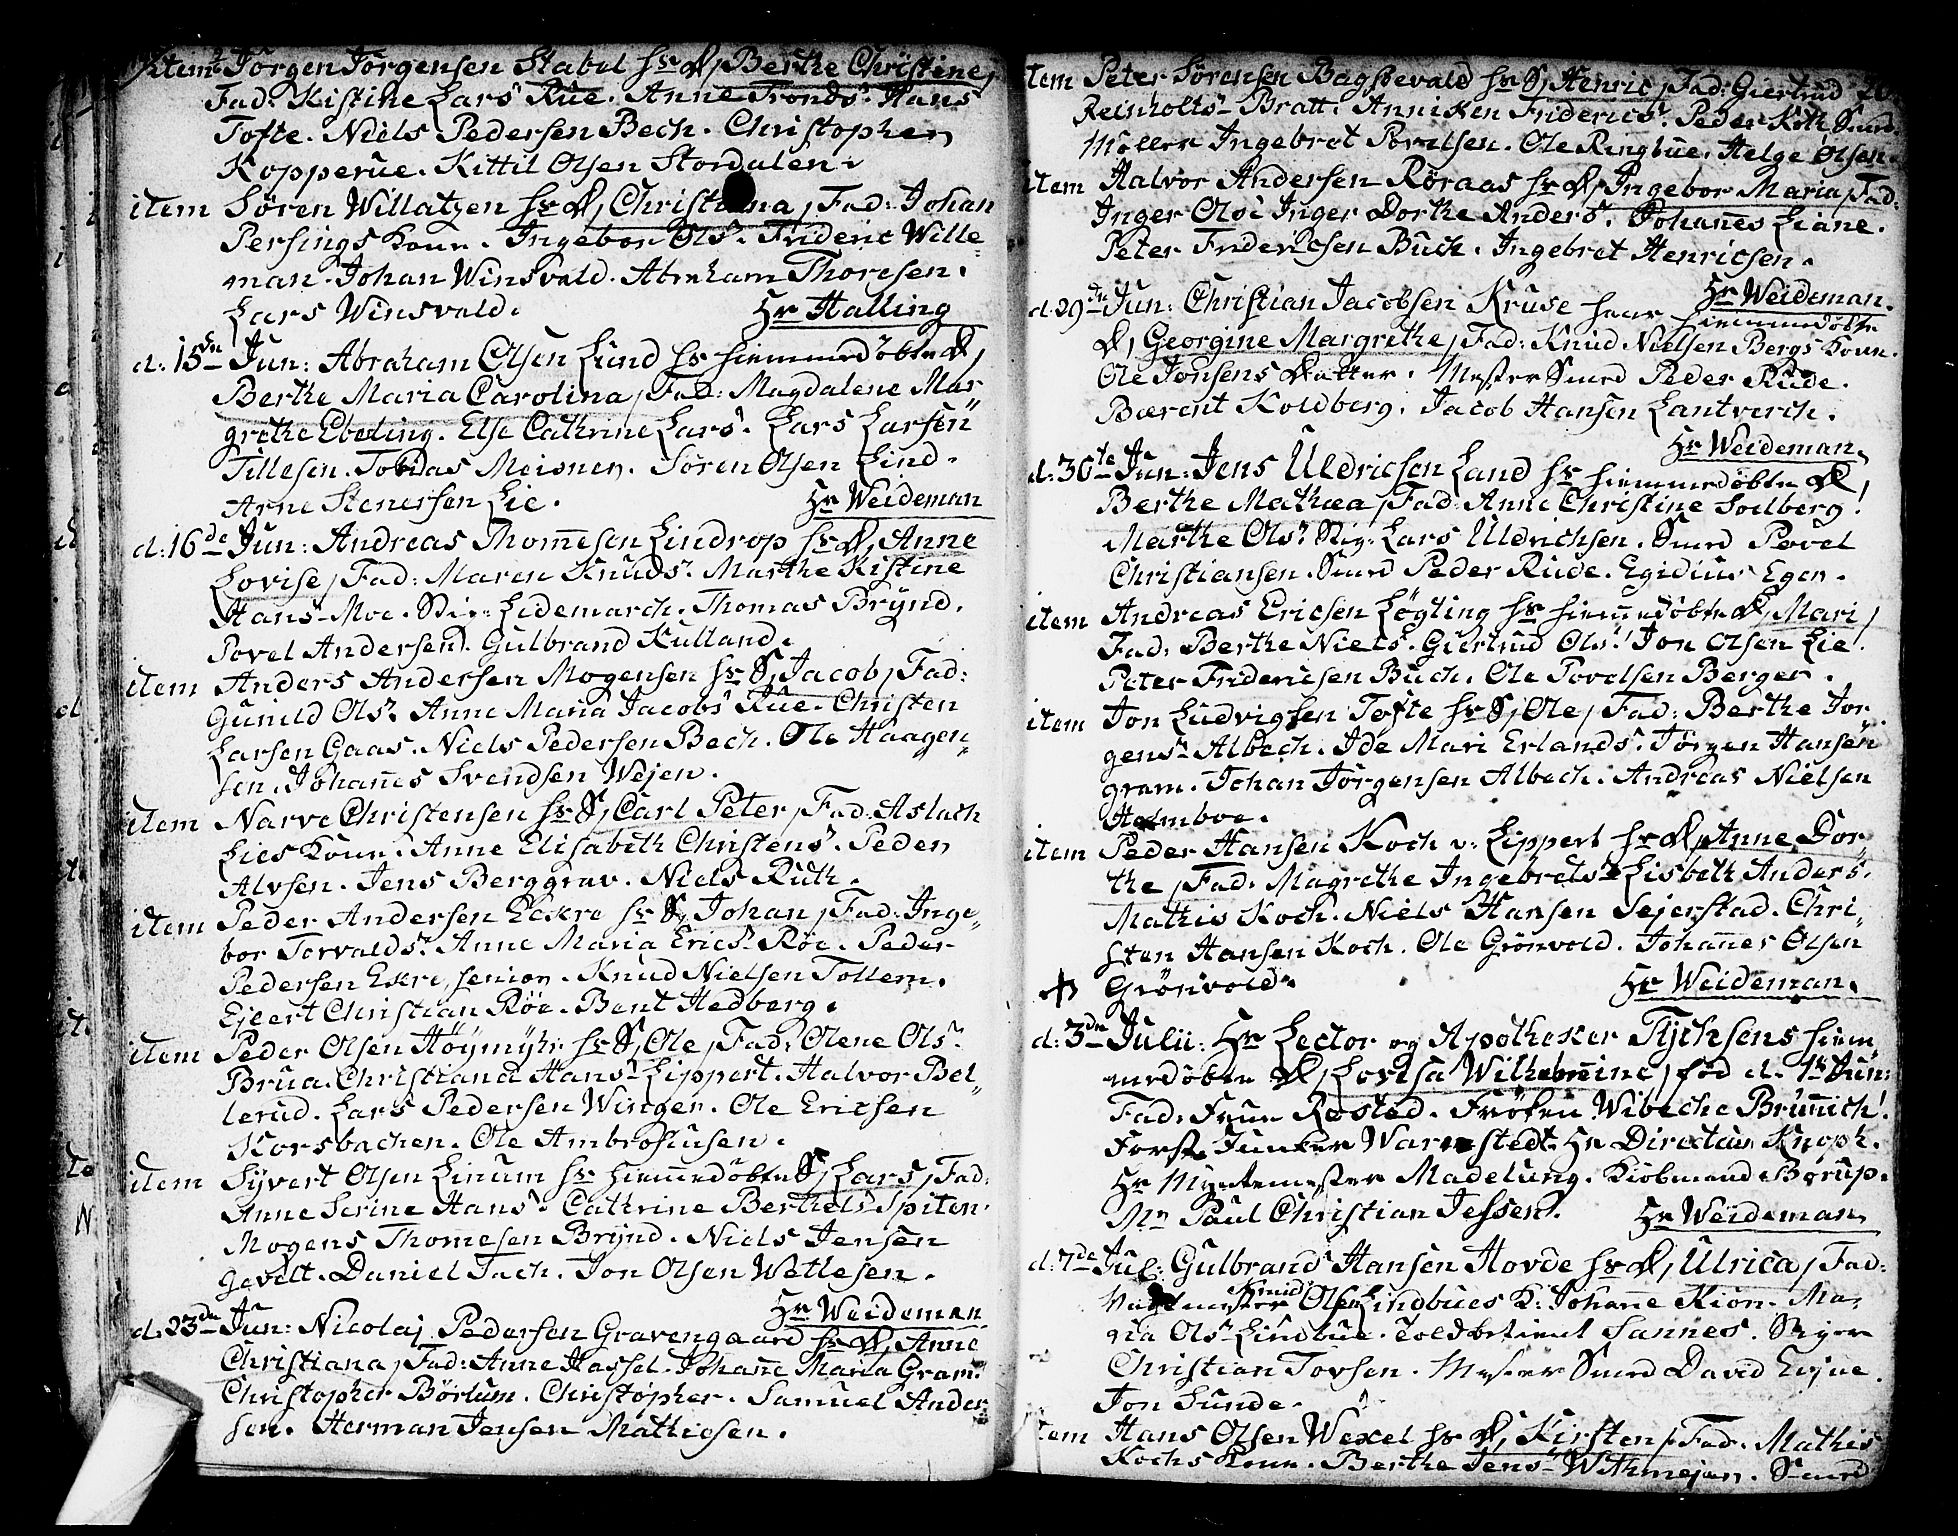 item Jørgen Jørgensen Stabel hs D, Berthe Christine,
Fad: Kistine Lars Rue. Anne Tronds. Hans
Tofte. Niels Pedersen Bech. Christopher
Kopperue. Kittil Olsen Stordalen.
item Søren Willatzen hs D, Christiana, Fad: Johan
Persings Kone. Ingebor Ols. Frideric Wille
man. Johan Winsvold. Abraham Thoresen.
Lars Winsvold. Hr Halling
d: 15de Jun: Abraham Olsen Lund hs hiemmedøbte D,
Berthe Maria Carolina, Fad: Magdalene Mar
grethe Ebeling. Else Cathrine Lars. Lars Larsen
Tillesen. Tobias Meisner. Søren Olsen Lind.
Arne Stenersen Lie. Hr Weideman
d: 16de Jun: Andreas Thommesen Lindrop hs D, Anne
Lovise, Fad: Maren Knuds. Marthe Kistine
Hans. Moe. Stig: Ledemarch. Thomas Brynd.
Povel Andersen. Gulbrand Kulland.
item Anders Andersen Mogensen hs S, Jacob, Fad:
Gunild Ols. Anne Maria Jacobs Rue. Christen
Larsen Gaas. Niels Pedersen Bech. Ole Haagen
sen. Johannes Svendsen Wejen.
item Narve Christensen hs S, Carl Peter, Fad: Aslach
Lies Kone. Anne Elisabeth Christens. Peder
Alvsen. Jens Berggrav. Niels Ruth.
item Peder Andersen Eckre hs S, Johan, Fad: Inge
bor Torvalds. Anne Maria Erics. Røe. Peder
Pedersen Ekre, senior. Knud Nielsen Tollem.
Ejlert Christian Røe. Bent Hedberg.
item Peder Olsen Høymyhr hs S, Ole, Fad: Olene Ols.
Brua. Christiana Hans. Lippert. Halvor Bel
lerud. Lars Pedersen Winger. Ole Ericsen
Korsbachen. Ole Ambrosiusen.
item Syvert Olsen Linum hs hiemmedøbte S, Lars, Fad:
Anne Serine Hans. Cathrine Berthels Spiten.
Mogens Thommesen Brynd. Niels Jensen
Gevelt. Daniel Tuch. Jon Olsen Wetlesen.
Hr Weideman
d: 23de Jun: Nicolaj Pedersen Gravengaard hs D, Anne
Christiana, Fad: Anne Hassel. Johanne Maria Gram.
Christopher Børtum. Christopher. Samuel Ander
sen. Herman Jensen Mathiesen.
item Peter Sørensen Bagsvevald hs S, Henric, Fad: Giertrud
Reinholts. Bratt. Anniken Friderics. Peder Koth Smed.
Møller Ingebret Povelsen. Ole Ringbue. Helge Olsen.
item Halvor Andersen Røraas hs D, Ingebor Maria, Fad:
Inger Ols. Inger Dorthe Anders. Johannes Liane.
Peter Fridericsen Buch. Ingebret Henricsen.
Hr Weideman.
d: 29de Jun: Christian Jacobsen Kruse hans hiemmedøbte
D, Georgine Margrethe, Fad: Knud Nielsen Bergs Kone.
Ole Jonsens Datter. Mester Smed Peder Rude.
Bærent Koldberg. Jacob Hansen Lantverch.
Hr Weideman.
d: 30te Jun: Jens Uldricsen Land hs hiemmedøbte D,
Berthe Mathea, Fad: Anne Christine Soelberg.
Marthe Ols. Stig: Lars Uldrichsen. Smed Povel
Christiansen. Smed Peder Rude. Egidius Egen.
item Andreas Ericsen Løgting hs hiemmedøbte D, Mari,
Fad: Berthe Niels. Giertrud Ols. Jon Olsen Lie.
Peter Fridericsen Buch. Ole Povelsen Berger.
item Jon Ludvigsen Tofte hs S, Ole, Fad: Berthe Jør
gens. Albech. Ide Mari Erlands. Jørgen Hansen
gram. Johan Jørgensen Albech. Andreas Nielsen
Holmboe.
item Peder Hansen Koch v. Lippert hs D, Anne Dor
the, Fad: Magrethe Ingebrets. Lisbeth Anders.
Mathis Koch. Niels Hansen Sejerstad. Chri
sten Hansen Koch. Ole Grønvold. Johannes Olsen
Grønvold. Hr Weideman.
d: 3de Julii: Hr Lector og Apotheker Tychsens hiem
medøbte D, Lovisa Wilhelmine, fød d. 1te Jun:
Fad: Frue Rosted. Frøken Wibeche Brünnich.
Forst Junker Warnstedt. Hr Directeur Knoph.
Hr Myntemester Madelung. Kiøbmand Borup.
Mr Paul Christian Jessen. Hr Weideman.
d: 7de Jul: Gulbrand Hansen Hovde hs D, Ulrica, Fad:
Knud Olsen Lindbues K: Johanne Kiøn. Ma
ria Ols. Lindbue. Toldbetient Sannes. Stiger
Christian Tovsen. Mester Smed David Eigne.
Jon Sunde.
item Hans Olsen Wexel hs D, Kirsten, Fad: Mathis
Kochs Kone. Berthe Jens. Withmejer. Smed